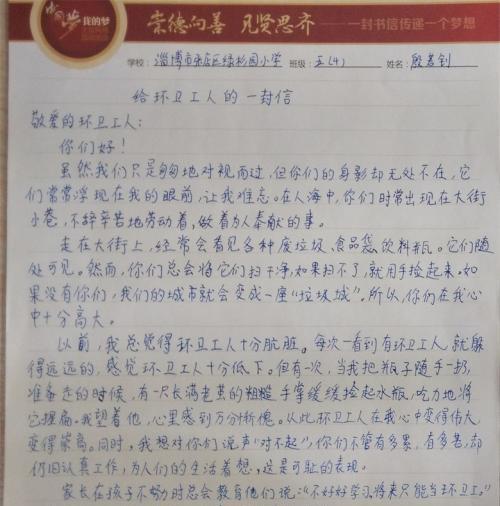 中国梦 我的梦
崇德向善 见贤思齐 一封书信传递一个梦想
学校:淄博市张店区绿杉园小学 班级:五(4) 姓名:殷若钊
给环卫工人的一封信
敬爱的环卫工人:
你们好!
虽然我们只是匆匆地对视而过,但你们的身影却无处不在,它
们常常浮现在我的眼前,让我难忘。在人海中,你们时常出现在大街
小巷,不辞辛苦地劳动着,做着为人奉献的事。
走在大街上,经常会看见各种废垃圾、食品袋、饮料瓶。它们随
处可见。然而,你们总会将它们扫干净,如果扫不了,就用手捡起来。如
果没有你们,我们的城市就会变成一座“垃圾城”。所以,你们在我心
中十分高大。
以前,我总觉得环卫工人十分肮脏。每次一看到有环卫工人,就躲
得远远的,感觉环卫工人十分低下。但有一次,当我把瓶子随手一扔,
准备走的时候,有一只长满老茧的粗糙手掌缓缓捡起水瓶,吃力地将
它捏扁。我望着他,心里感到万分惭愧。从此环卫工人在我心中变得伟大,
变得崇高。同时,我想对你们说声“对不起”,你们不管有多累,有多苦,却
仍旧认真工作,为人们的生活着想,这是可耻的表现。
家长在孩子不努力时总会教育他们说:“不好好学习,将来只能当环卫工。”